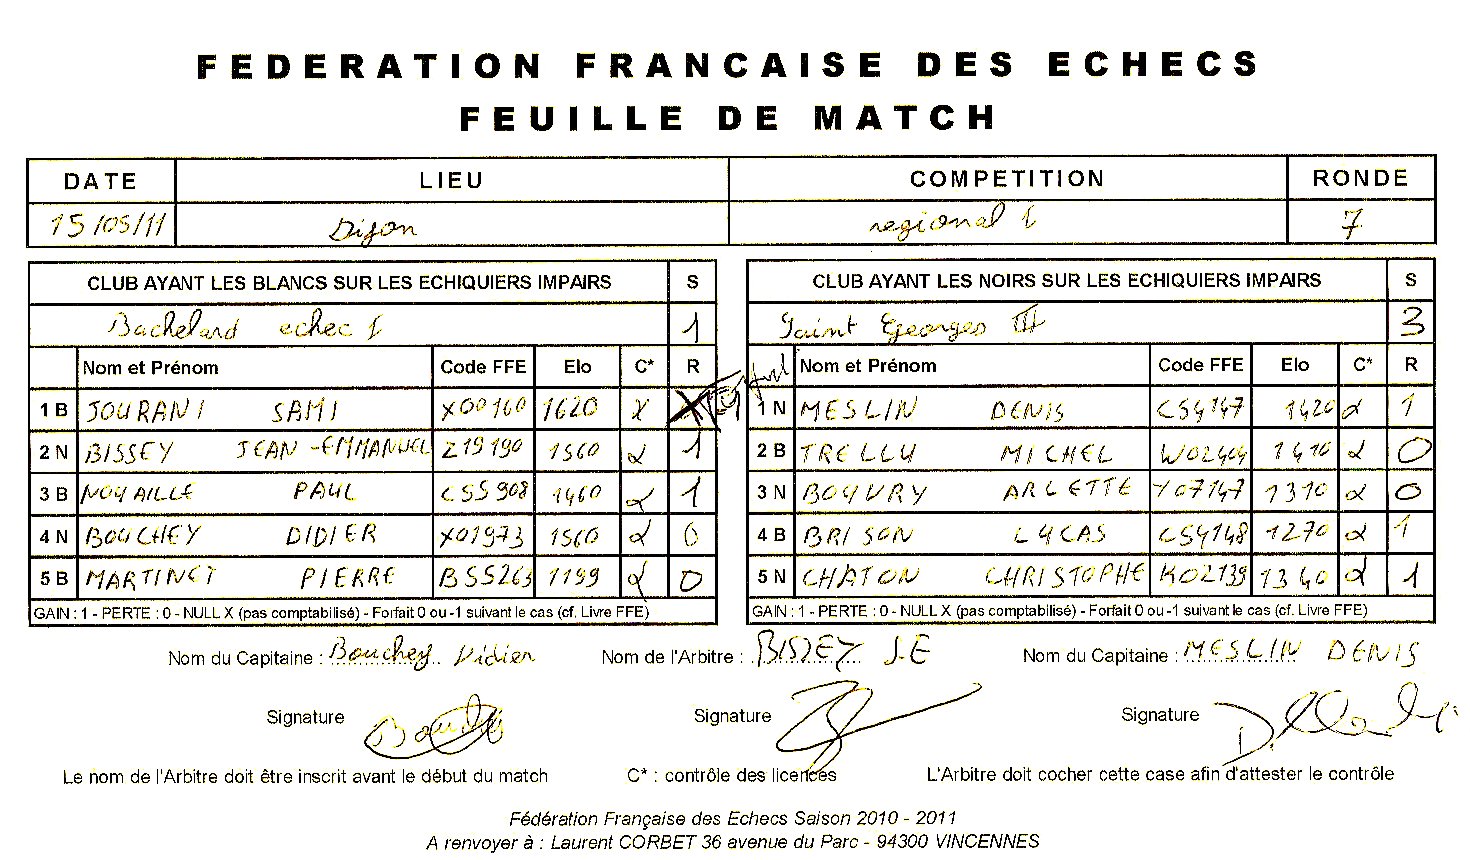 FEDERATION FRANCAISE DES ECHECS
FEUILLE DE MATCH
DATE LIEU COMPETITION RONDE
15/05/11 Dijon regional 1 7
CLUB AYANT LES BLANCS SUR LES ECHIQUIERS IMPAIRS S
Bachelard echec 1 1
Nom et Prénom Code FFE Elo C* R
1 B JOURANI SAMI X00160 1620 X
2 N BISSEY JEAN-EMMANUEL Z19190 1560 α 1
3 B NOUAILLE PAUL C55908 1460 α 1
4 N BOUCHEY DIDIER X01973 1560 α 0
5 B MARTINET PIERRE B55263 1199 α 0
GAIN : 1 - PERTE : 0 - NULL X (pas comptabilisé) - Forfait 0 ou -1 suivant le cas (cf. Livre FFE)
CLUB AYANT LES NOIRS SUR LES ECHIQUIERS IMPAIRS S
Saint Georges III 3
Nom et Prénom Code FFE Elo C* R
1 N MESLIN DENIS C54147 1420 α 1
2 B TRELLU MICHEL W02404 1410 α 0
3 N BOUVRY ARLETTE Y07147 1310 α 0
4 B BRISON LUCAS C54148 1270 α 1
5 N CHATON CHRISTOPHE K02139 1340 α 1
GAIN : 1 - PERTE : 0 - NULL X (pas comptabilisé) - Forfait 0 ou -1 suivant le cas (cf. Livre FFE)
Nom du Capitaine : Bouchey Didier Nom de l'Arbitre : BISSEY J.E Nom du Capitaine : MESLIN DENIS
Signature Signature Signature
Le nom de l'Arbitre doit être inscrit avant le début du match C* : contrôle des licences L'Arbitre doit cocher cette case afin d'attester le contrôle
Fédération Française des Echecs Saison 2010 - 2011
A renvoyer à : Laurent CORBET 36 avenue du Parc - 94300 VINCENNES